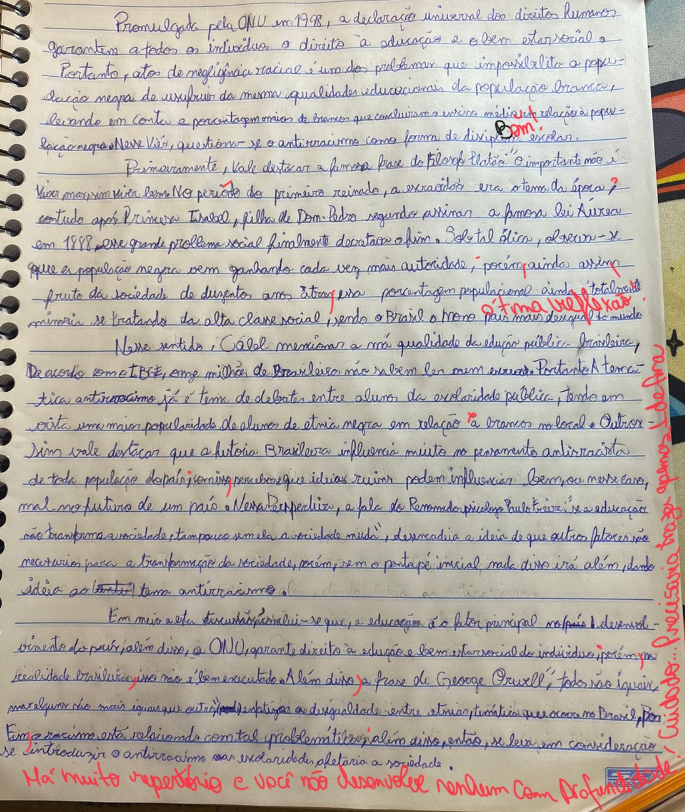 Promulgada pela ONU em 1998, a declaração universal dos direitos humanos
garantem a todos os individuos o direito à educação e o bem estar social.
Portanto, atos de negligência racial é um dos problemas que impossibilita a popu-
lação negra de usufruir da mesma qualidades educacionais da população branca,
levando em conta a porcentagem maior de brancos que concluiram o ensino médio em relação à popu-
lação negra. Nesse Viés, questiona-se o antirracismo como forma de disciplina escolar.
Bem!
Primeiramente, vale destacar a famosa frase do filosofo Platão "O importante não é
viver mas, sim viver bem. No período do primeiro reinado, a escravidão era o tema da época,
contudo após Princesa Isabal, filha de Dom-Pedro segundo assinar a famosa lei Áurea
em 1888, esse grande problema social finalmente decretava o fim. Sob tal ótica, observa-se
que a população negra vem ganhando cada vez mais autoridade, porém, ainda assim
fruto da sociedade de duzentos anos atras, essa porcentagem populacional ainda totaliza
minoria se tratando da alta classe social, sendo o Brasil o Nono pais mais desigual do mundo
ótima reflexão!
Nesse sentido, mencionar a má qualidade da edução pública brasileira,
De acordo com o IBGE, onze milhões de Brasileiros não sabem ler nem escrever. Portanto A temá-
tica antirracismo já é tema de debates entre alunos da escolaridade pública, tendo em
vista uma maior popularidade de alunos de etnia negra em relação a brancos no local. Outros-
sim vale destacar que a história Brasileira influencia muito no pensamento antirracista
de toda população do país, perceber que ideias ruins podem influenciar bem, ou nesse caso,
mal no futuro de um país. Nessa Perspectiva, a fala do Renomado psicologo Paulo Freire, "se a educação
não transforma a sociedade, tampouco sem ela a sociedade muda", desencadia a ideia de que outros fatores são
necessarios para a transformação da sociedade, porém, sem o pontapé inicial nada disso irá além, dando
idéia ao tema antirracismo.
Em meio a esta discussão, conclui-se que, a educação é o fator principal desenvol-
vimento do país, além disso, a ONU, garante direito à edução e bem estar social do individuo, porém, na
realidade brasileira, isso não é bem executado. Além disso, a frase de George Orwell, "todos são iguais,
mas alguns são mais iguais que outros" enfatiza a desigualdade entre etnias, temática que ocorre no Brasil, Por
Fim, o racismo está relacionado com tal problemática, além disso, então, se leva em consideração
se introduzir o antirracismo nas escolaridades a sociedade.
Há muito repertório e você não desenvolve nenhum com profundidade!
Cuidado... Precisaria trazer apenas 1 de fora